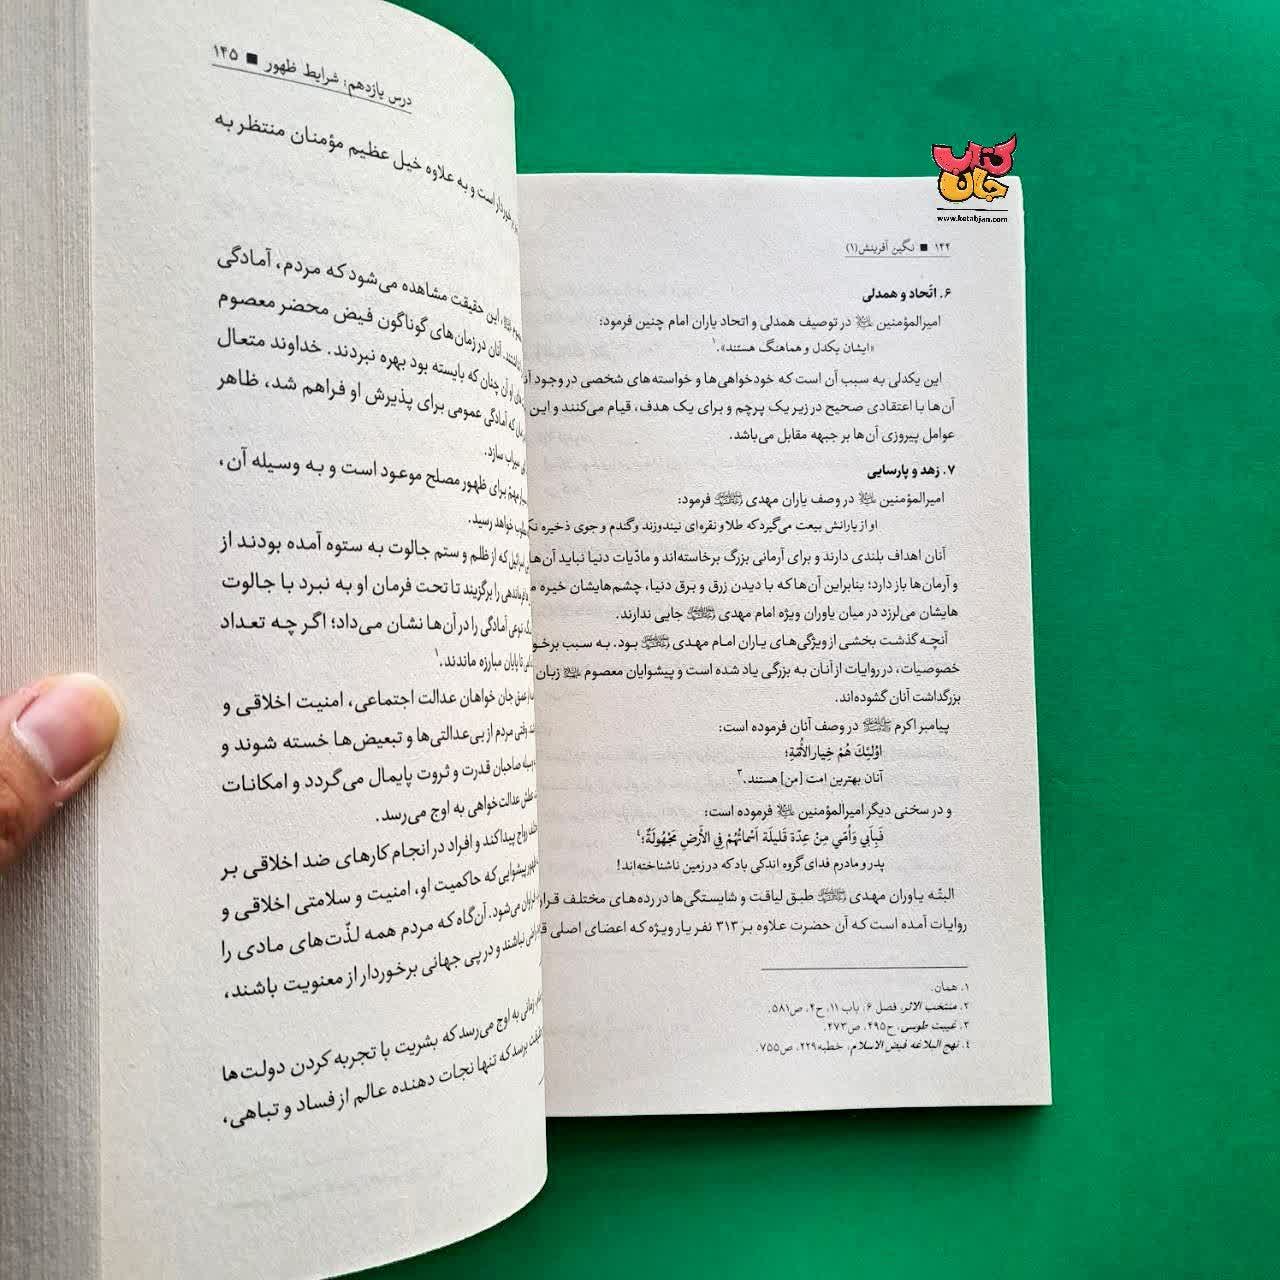 کتاب
جان
www.ketabjan.com
۱۴۴ ■ نگین آفرینش(۱)
۶. اتّحاد و همدلی
امیرالمؤمنین در توصیف همدلی و اتحاد یاران امام چنین فرمود:
«ایشان یکدل و هماهنگ هستند».۱
این یکدلی به سبب آن است که خودخواهی‌ها و خواسته‌های شخصی در وجود
آن‌ها با اعتقادی صحیح در زیر یک پرچم و برای یک هدف، قیام می‌کنند و این
عوامل پیروزی آن‌ها بر جبهه مقابل می‌باشد.
۷. زهد و پارسایی
امیرالمؤمنین در وصف یاران مهدی فرمود:
او از یارانش بیعت می‌گیرد که طلا و نقره‌ای نیندوزند و گندم و جوی ذخیره
آنان اهداف بلندی دارند و برای آرمانی بزرگ برخاسته‌اند و مادّیات دنیا نباید آن‌ها
و آرمان‌ها باز دارد؛ بنابراین آن‌ها که با دیدن زرق و برق دنیا، چشم‌هایشان خیره
هایشان می‌لرزد در میان یاوران ویژه امام مهدی جایی ندارند.
آنچه گذشت بخشی از ویژگی‌های یاران امام مهدی بود. به سبب
خصوصیات، در روایات از آنان به بزرگی یاد شده است و پیشوایان معصوم زبان
بزرگداشت آنان گشوده‌اند.
پیامبر اکرم در وصف آنان فرموده است:
اوُلئِكَ هُمْ خِيارالأُمَّةِ؛
آنان بهترین امت [من] هستند.۳
و در سخنی دیگر امیرالمؤمنین فرموده است:
فَبِأَبي وَأُمّي مِنْ عِدّة قَليلَة اَسْمائُهُمْ فِي الأَرضِ مَجْهُولَةٌ؛۴
پدر و مادرم فدای گروه اندکی باد که در زمین ناشناخته‌اند!
البتّه یاوران مهدی طبق لیاقت و شایستگی‌ها در رده‌های مختلف
روایات آمده است که آن حضرت علاوه بر ۳۱۳ نفر یار ویژه که اعضای اصلی
۱. همان.
۲. منتخب الاثر، فصل ۶، باب ۱۱، ح۴، ص۵۸۱.
۳. غیبت طوسی، ح۴۹۵، ص۴۷۳.
۴. نهج البلاغه فیض الاسلام، خطبه۲۲۹، ص۷۵۵.
درس یازدهم: شرایط ظهور ■ ۱۴۵
است و به علاوه خیل عظیم مؤمنان منتظر به
این حقیقت مشاهده می‌شود که مردم، آمادگی
آنان در زمان‌های گوناگون فیض محضر معصوم
او آن چنان که بایسته بود بهره نبردند. خداوند متعال
که آمادگی عمومی برای پذیرش او فراهم شد، ظاهر
سیراب سازد.
مهمّ برای ظهور مصلح موعود است و به وسیله آن،
خواهد رسید.
که از ظلم و ستم جالوت به ستوه آمده بودند از
را برگزیند تا تحت فرمان او به نبرد با جالوت
نوعی آمادگی را در آن‌ها نشان می‌داد؛ اگر چه تعداد
تا پایان مبارزه ماندند.۱
عمق جان خواهان عدالت اجتماعی، امنیت اخلاقی و
وقتی مردم از بی‌عدالتی‌ها و تبعیض‌ها خسته شوند و
صاحبان قدرت و ثروت پایمال می‌گردد و امکانات
عطش عدالت‌خواهی به اوج می‌رسد.
رواج پیدا کند و افراد در انجام کارهای ضد اخلاقی بر
پیشوایی که حاکمیت او، امنیت و سلامتی اخلاقی و
می‌شود. آن‌گاه که مردم همه لذّت‌های مادی را
نباشند و در پی جهانی برخوردار از معنویت باشند،
زمانی به اوج می‌رسد که بشریت با تجربه کردن دولت‌ها
برسد که تنها نجات دهنده عالم از فساد و تباهی،